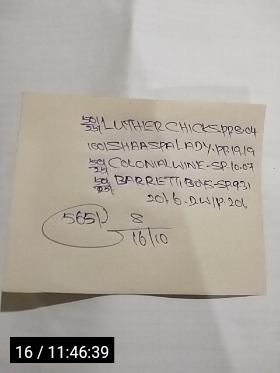 50/25 LUTHER CHICKSPP8.04
100/SHAASPALADY.PP.19.19
50/25 COLONIALWINE-SP.10.07
50/25 BARRETTIBOYS-SP9.31
20/6.D.W/P.206
565/- 8
16/10
16 / 11:46:39